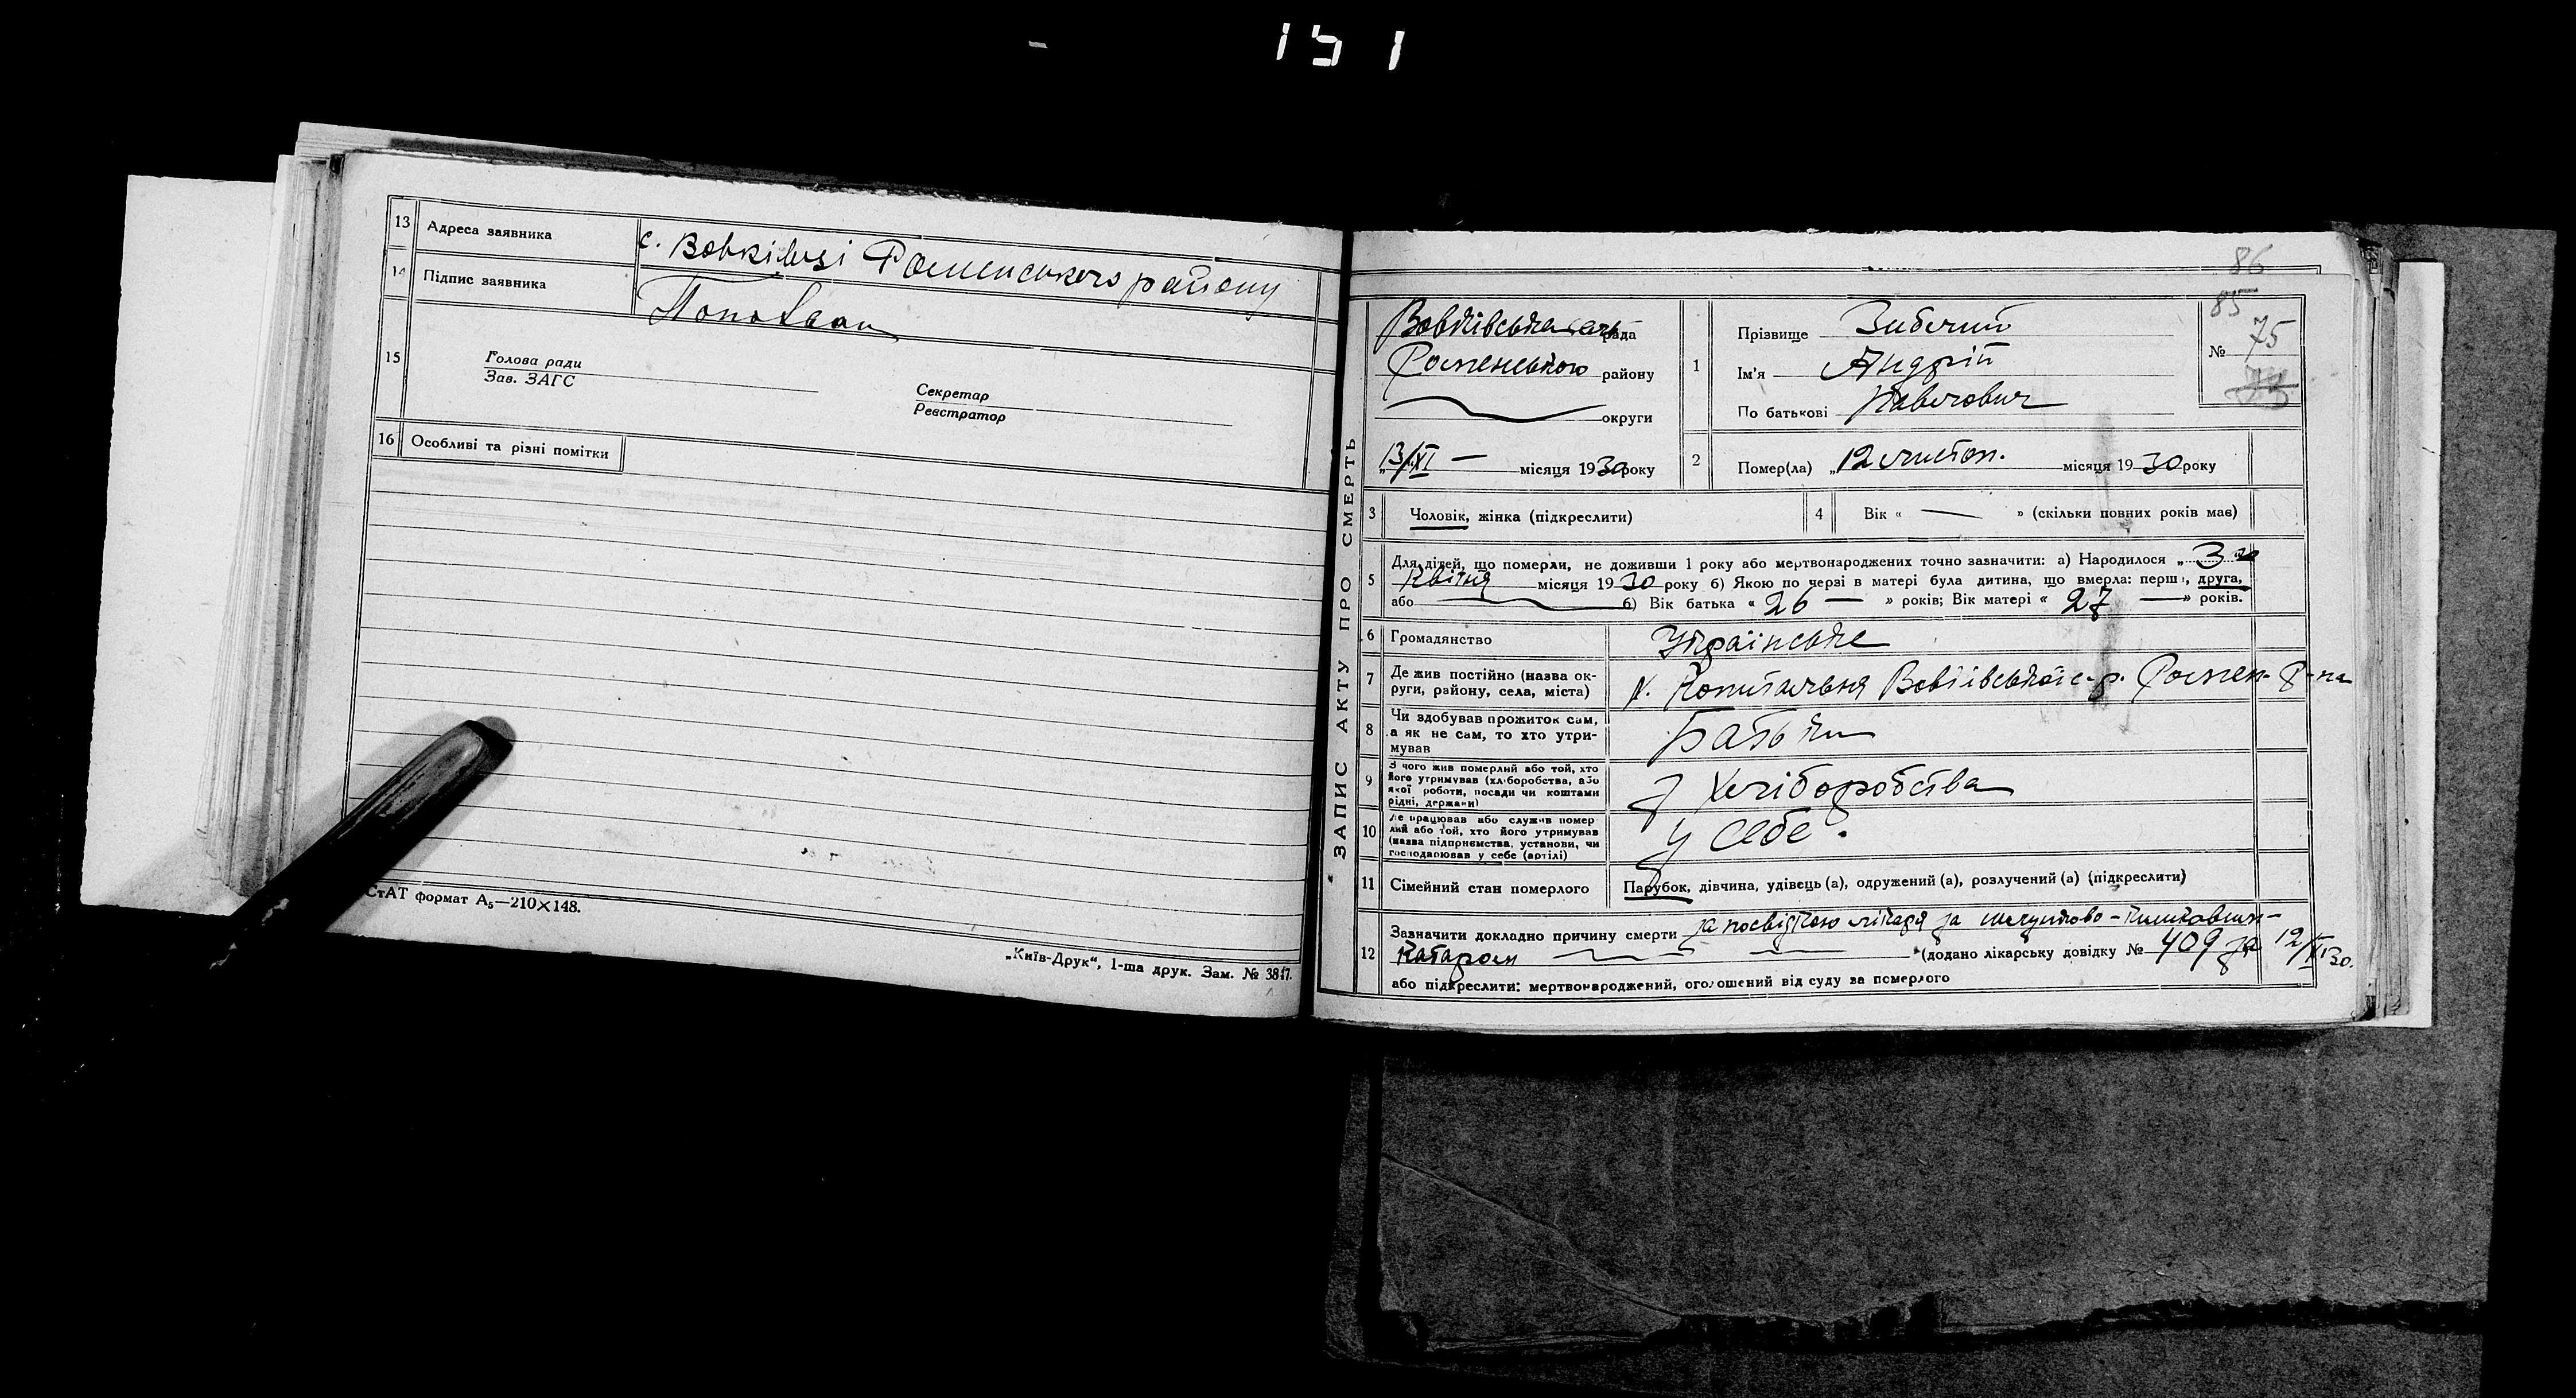 151
13 Адреса заявника с. Вовківці Роменського району
14 Підпис заявника
15 Голова ради
Зав. ЗАГС
Секретар
Реєстратор
16 Особливі та різні помітки
СтАТ формат А5—210×148.
„Київ-Друк“, 1-ша друк. Зам. № 3817.
86
85
ЗАПИС АКТУ ПРО СМЕРТЬ
Вовківська рада
Роменського району
округи
„13/XI — місяця 1930 року
1 Прізвище
Ім'я Андрій
По батькові Павлович
№ 75
2 Помер(ла) „12 листоп. місяця 1930 року
3 Чоловік, жінка (підкреслити)
4 Вік « — » (скільки повних років має)
5 Для дітей, що померли, не доживши 1 року або мертвонароджених точно зазначити: а) Народилося „ 3го
Квітня місяця 1930 року б) Якою по черзі в матері була дитина, що вмерла: перша, друга,
або б) Вік батька « 26 — » років; Вік матері « 27 — » років.
6 Громадянство Українське
7 Де жив постійно (назва округи, району, села, міста) х. Копитальня Вовківської с-р. Ромен. р-на
8 Чи здобував прожиток сам, а як не сам, то хто утримував Батьки
9 З чого жив померлий або той, хто його утримував (хліборобства, або якої роботи, посади чи коштами рідні, держави) З хліборобства
10 Де працював або служив померлий або той, хто його утримував (назва підприємства, установи, чи господарював у себе (артілі) У себе.
11 Сімейний стан померлого Парубок, дівчина, удівець (а), одружений (а), розлучений (а) (підкреслити)
12 Зазначити докладно причину смерти за посвідкою лікаря за шлунково-кишковим
Катаром (додано лікарську довідку № 409 за 12/XI 30.
або підкреслити: мертвонароджений, оголошений від суду за померлого